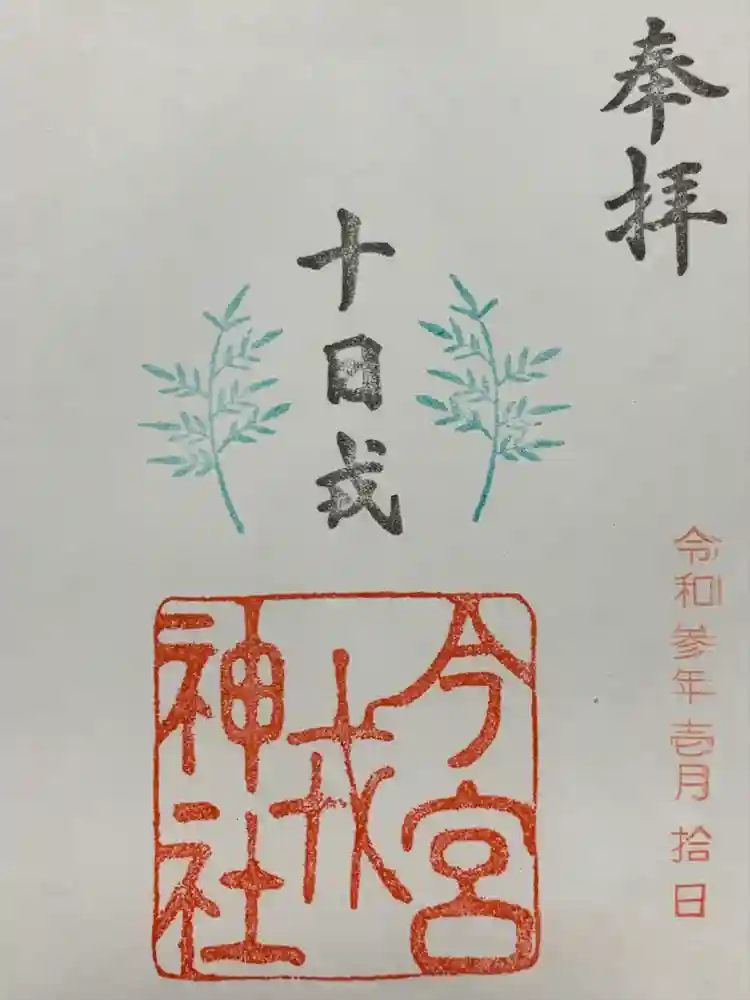 奉拝
令和参年壱月拾日
十日戎
今宮
戎
神社